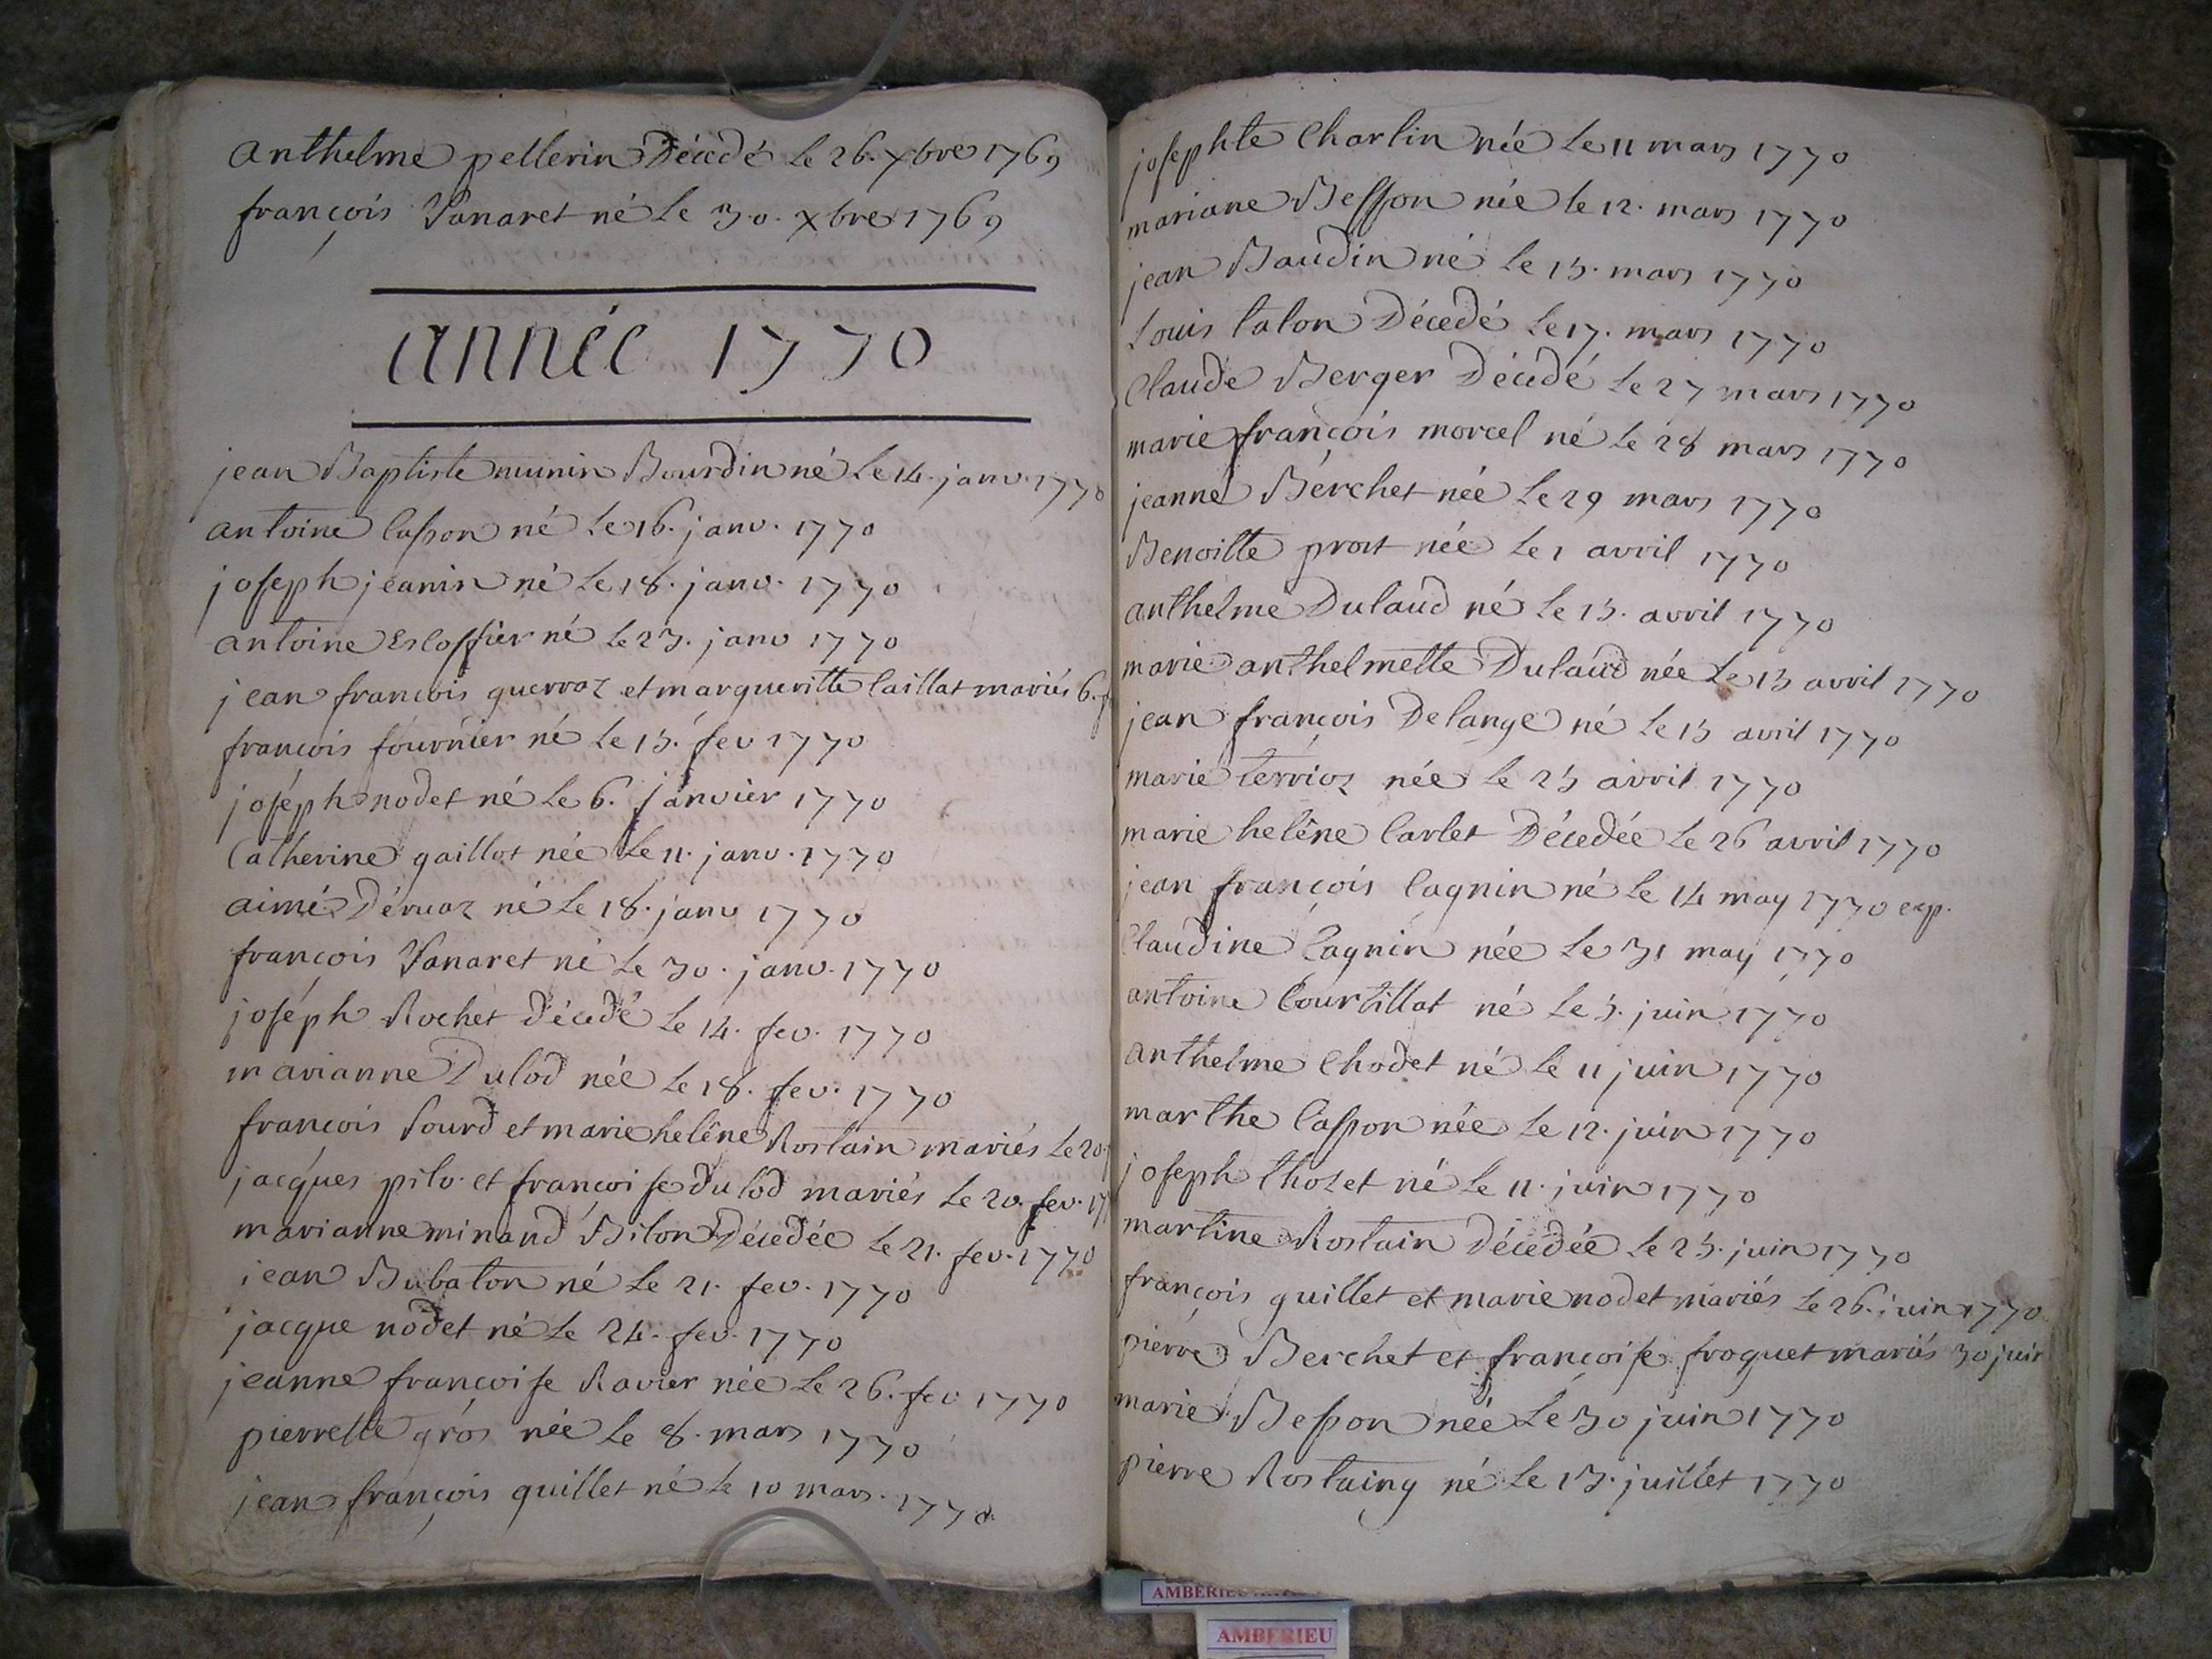 anthelme pellerin Décedé le 26. xbre 1769
françois Vanaret né Le 30. xbre 1769
année 1770
jean Baptiste munin Bourdin né Le 14. janv. 1770
antoine Casson né Le 16. janv. 1770
joseph jeanin né Le 18. janv. 1770
antoine Escoffier né Le 23. janv 1770
jean francois guerraz et margueritte Caillat mariés 6.
françois fournier né Le 15. fev 1770
joseph nodet né Le 6. janvier 1770
Catherine gaillot née Le 11. janv. 1770
aimé Déruaz né Le 18. janv 1770
françois Vanaret né Le 30. janv. 1770
joseph Rochet décedé Le 14. fev. 1770
marianne Dulod née Le 18. fev. 1770
françois Sourd et marie helêne Rostain mariés Le 20.
jacques pilo et françoise dulod mariés Le 20. fev. 17
marianne minand Bilon Décedée Le 21. fev. 1770
jean Bubaton né Le 21. fev. 1770
jacque nodet né Le 24. fev. 1770
jeanne françoise Ravier née Le 26. fev 1770
pierrette gros née Le 8. mars 1770
jean françois guillet né Le 10 mars. 1770
josephte Charlin née Le 11 mars 1770
mariane Besson née le 12. mars 1770
jean Baudin né Le 15. mars 1770
Louis talon Décedé Le 17. mars 1770
Claude Berger Décedé Le 27 mars 1770
marie françois morcel né Le 28 mars 1770
jeanne Berchet née Le 29 mars 1770
Benoitte prost née Le 1 avril 1770
anthelme Dulaud né Le 13. avril 1770
marie anthelmette Dulaud née Le 13 avril 1770
jean françois Delange né Le 15 avril 1770
marie née Le 25 avril 1770
marie helêne Carlet Décedée Le 26 avril 1770
jean françois Cagnin né Le 14 may 1770 exp.
Claudine Cagnin née Le 31 may 1770
antoine Courtillat né Le 5. juin 1770
anthelme Chodet né Le 11 juin 1770
marthe Casson née Le 12. juin 1770
joseph thozet né Le 11. juin 1770
martine Rostain Décedée Le 25. juin 1770
françois guillet et marie nodet mariés Le 26. juin 1770
pierre Berchet et françoise froquet mariés 30 juin
marie Besson née Le 30 juin 1770
pierre Rostaing né Le 13. juillet 1770
AMBERIEU
AMBERIEU